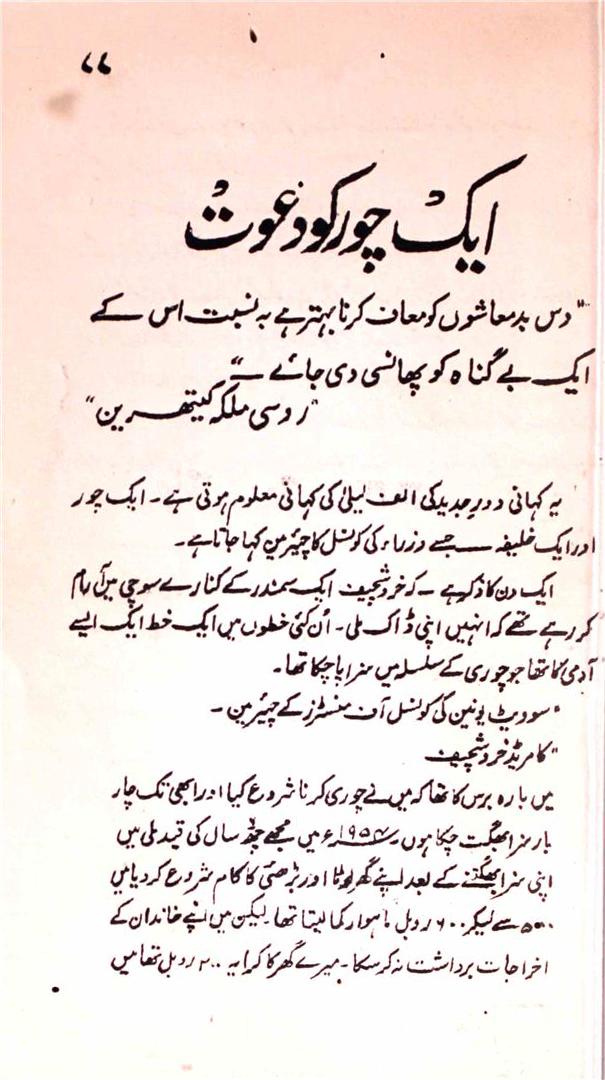 ۲۲
ایک چور کو دعوت
"دس بدمعاشوں کو معاف کرنا بہتر ہے بہ نسبت اس کے
ایک بے گناہ کو پھانسی دی جائے —"
"روسی ملکہ کیتھرین"
یہ کہانی دورِ جدید کی الف لیلیٰ کی کہانی معلوم ہوتی ہے۔ ایک چور
اور ایک خلیفہ — جسے وزراء کی کونسل کا چیئرمین کہا جاتا ہے۔
ایک دن کا ذکر ہے — کہ خروشچیف ایک سمندر کے کنارے سوچی میں آرام
کر رہے تھے کہ انہیں اپنی ڈاک ملی۔ اُن کئی خطوں میں ایک خط ایک ایسے
آدمی کا تھا جو چوری کے سلسلہ میں سزا پا چکا تھا۔
"سوویٹ یونین کی کونسل آف منسٹرز کے چیئرمین۔
"کامریڈ خروشچیف
میں بارہ برس کا تھا کہ میں نے چوری کرنا شروع کیا اور ابھی تک چار
بار سزا بھگت چکا ہوں۔ ء میں مجھے چھ سال کی قید ملی میں
اپنی سزا بھگتنے کے بعد اپنے گھر لوٹا اور بڑھئی کا کام شروع کر دیا میں
۵۰۰ سے لیکر ۶۰۰ روبل ماہوار کما لیتا تھا۔ لیکن میں اپنے خاندان کے
اخراجات برداشت نہ کر سکا۔ میرے گھر کا کرایہ ۲۰۰ روبل تھا میں